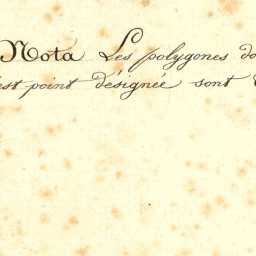 Nota Les polygones do
est point désignée sont